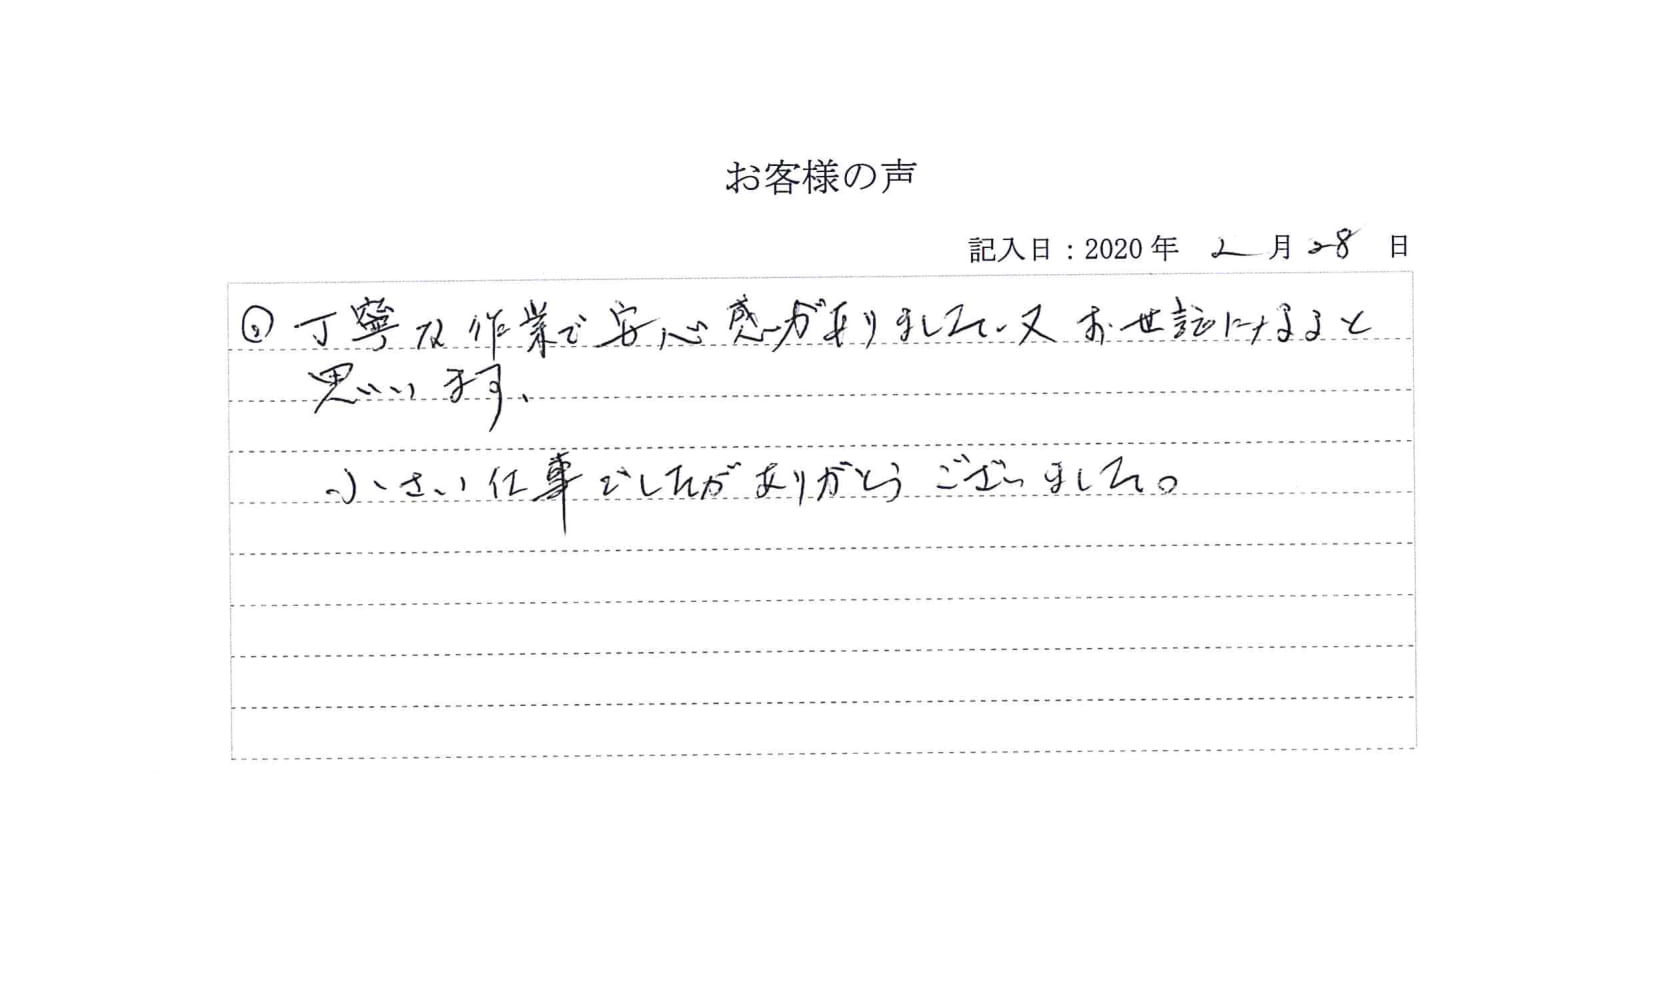 お客様の声
記入日：2020 年 2 月 28 日
② 丁寧な作業で安心感がありました、又お世話になると
思います、
小さい仕事でしたがありがとうございました。